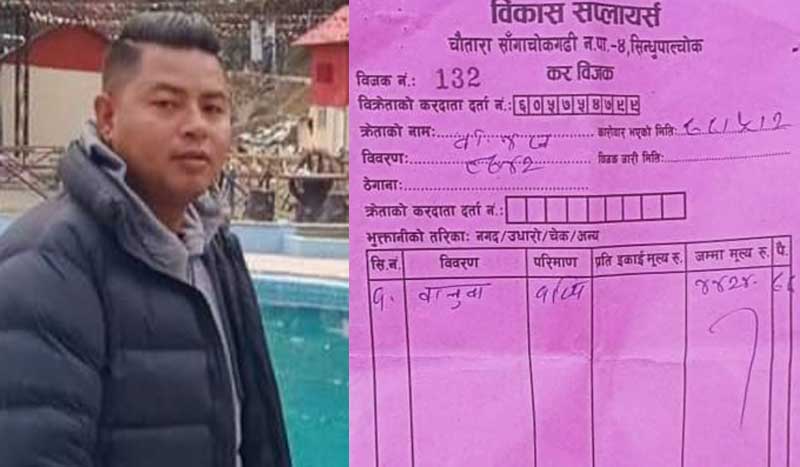 विकास सप्लायर्स
चौतारा साँगाचोकगढी न.पा.-४, सिन्धुपाल्चोक
विजक नं.: 132 कर विजक
विक्रेताको करदाता दर्ता नं.: ६०५७५४७९९
क्रेताको नाम: कारोवार भएको मिति:
विवरण: विजक जारी मिति:
ठेगाना:
क्रेताको करदाता दर्ता नं.:
भुक्तानीको तरिका: नगद/उधारो/चेक/अन्य
सि.नं. विवरण परिमाण प्रति इकाई मूल्य रु. जम्मा मूल्य रु. पै.
१. वालुवा